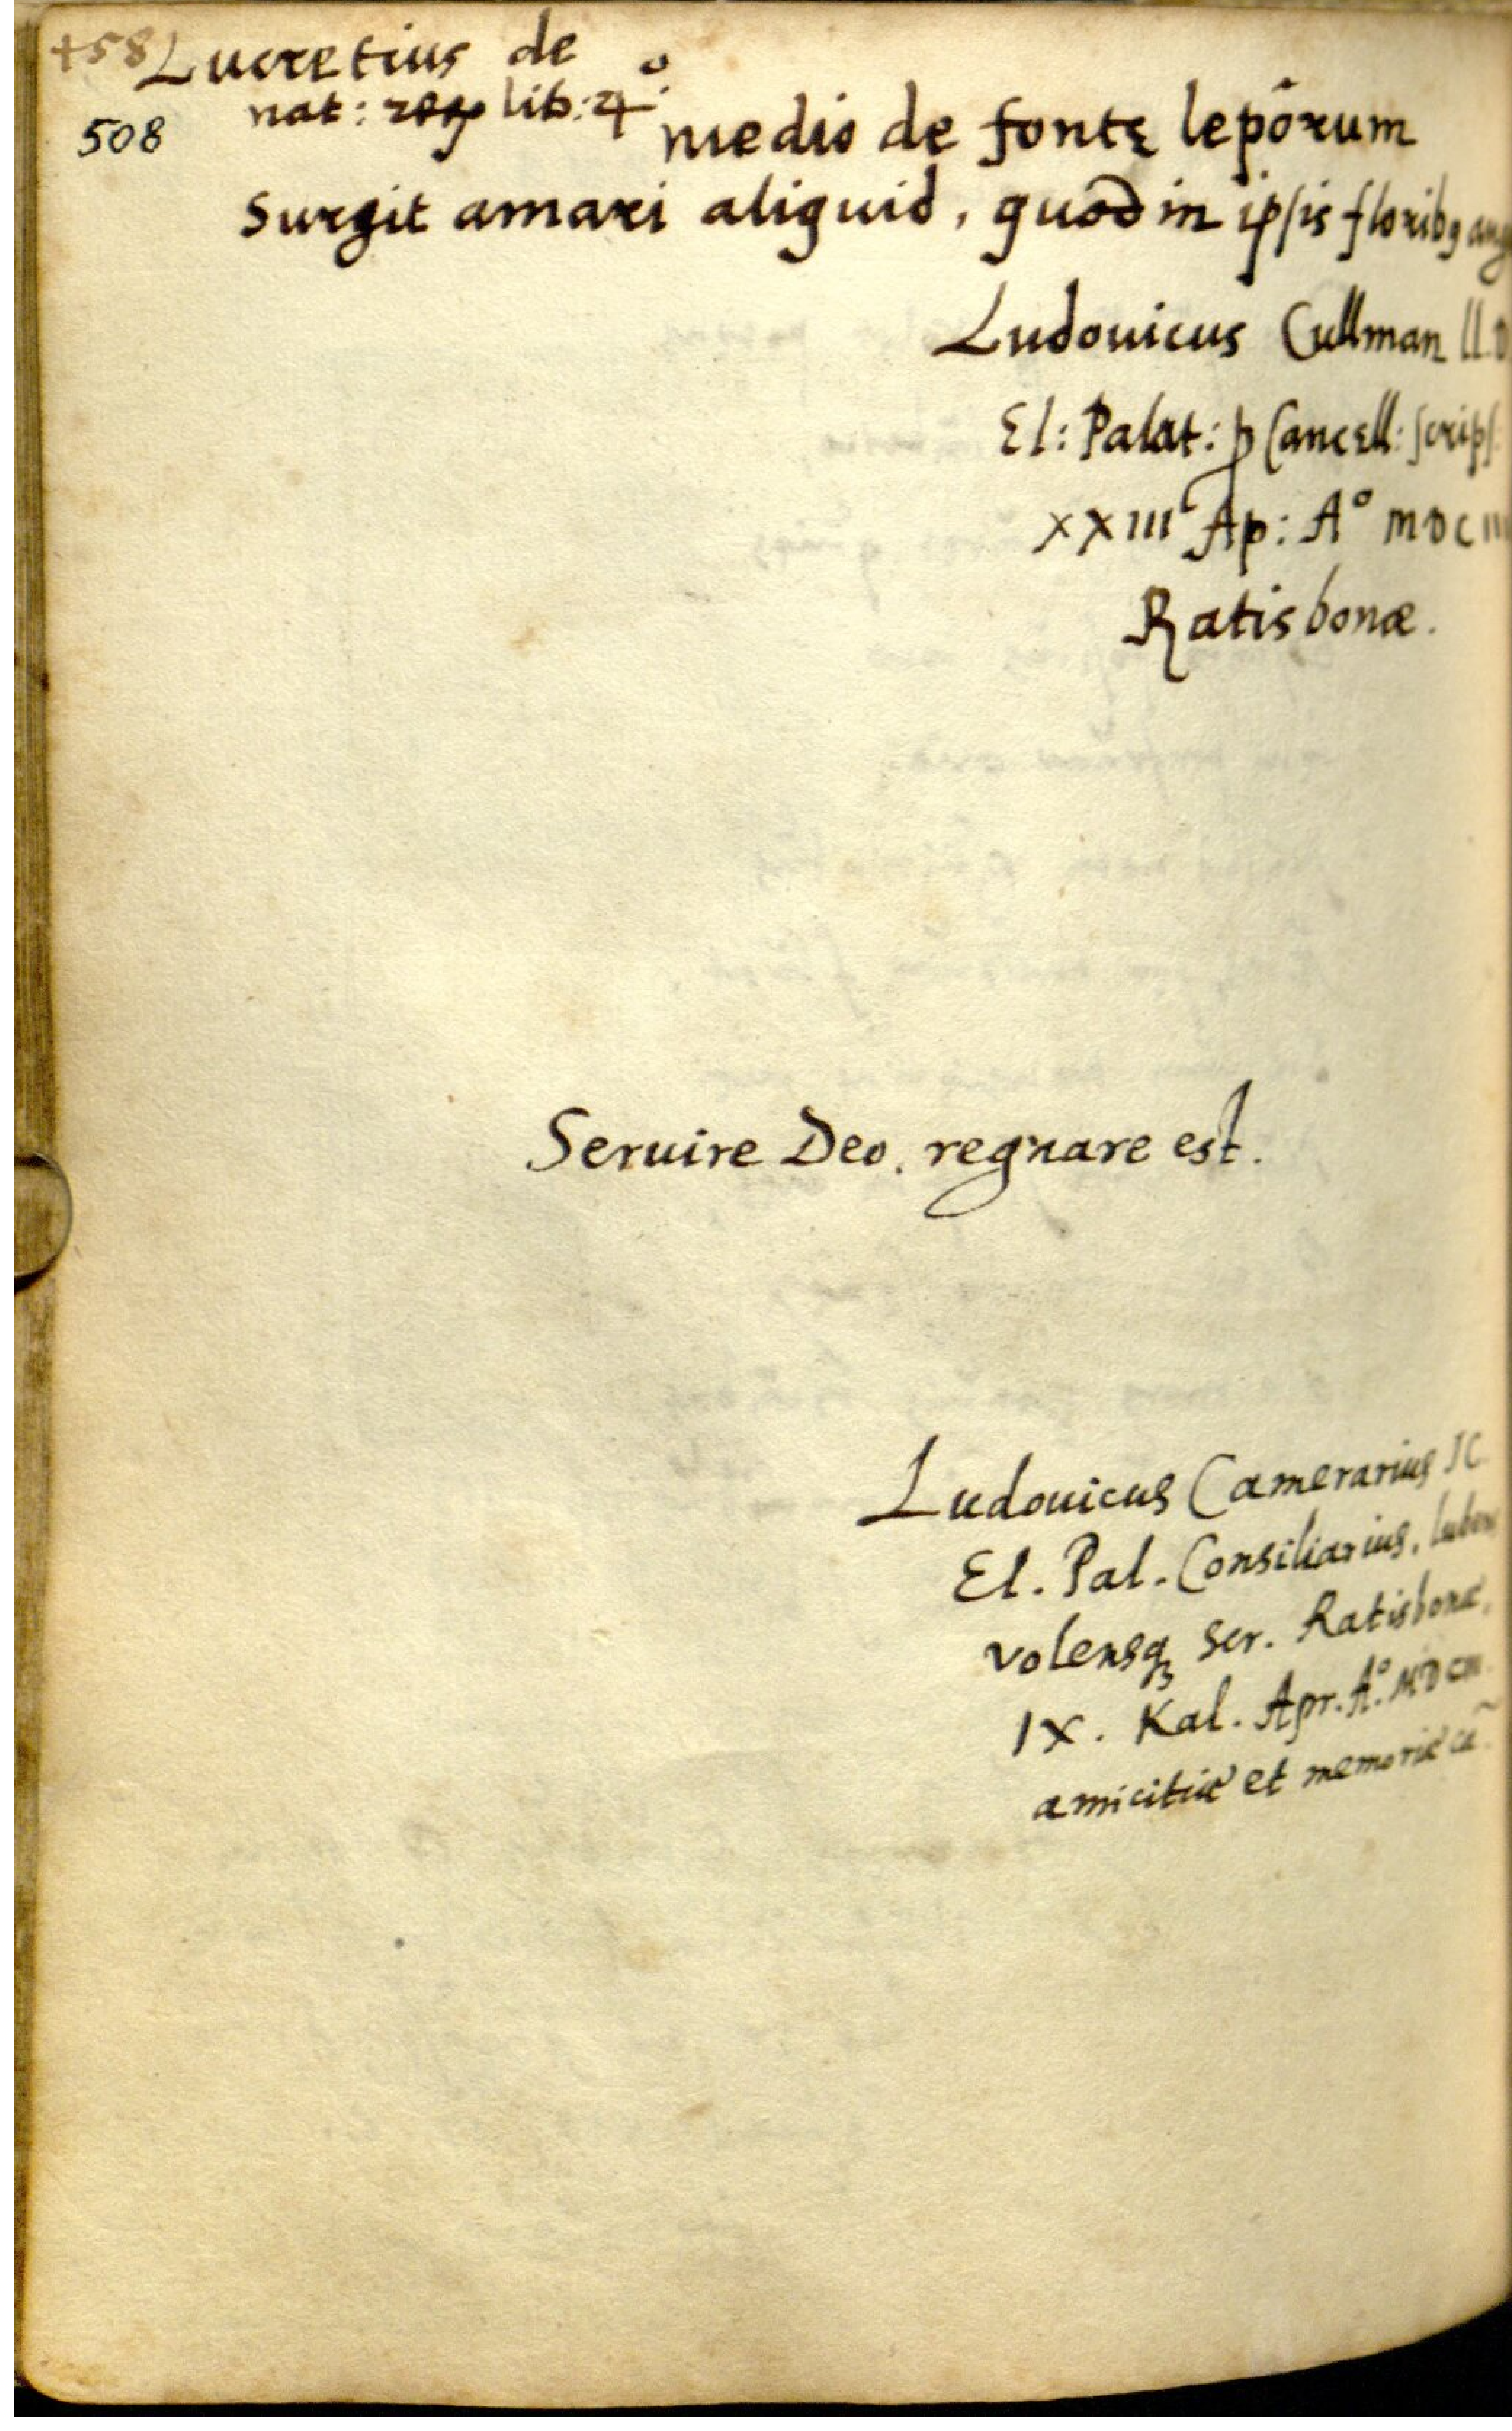 +58 Lucretius de
nat: reꝝ lib: 4º.
508
medio de fonte lepôrum
Surgit amari aliquid, quod in ipsis floribꝰ ang
Ludouicus Cullman LL. D
El: Palat: ꝓCancell: scrips:
XXIII Ap: A° MDCIII
Ratisbonæ.
Seruire Deo, regnare est.
Ludouicus Camerarius IC.
El. Pal. Consiliarius, lubens
volensqꝫ scr. Ratisbonæ,
IX. Kal. Apr. A°. MDCIII.
amicitiæ et memoriæ cã.